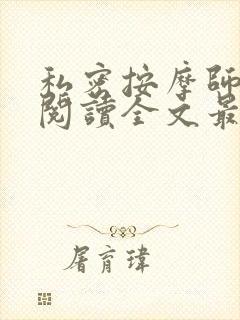 私密按摩師
閱讀全文最
屠育瑋